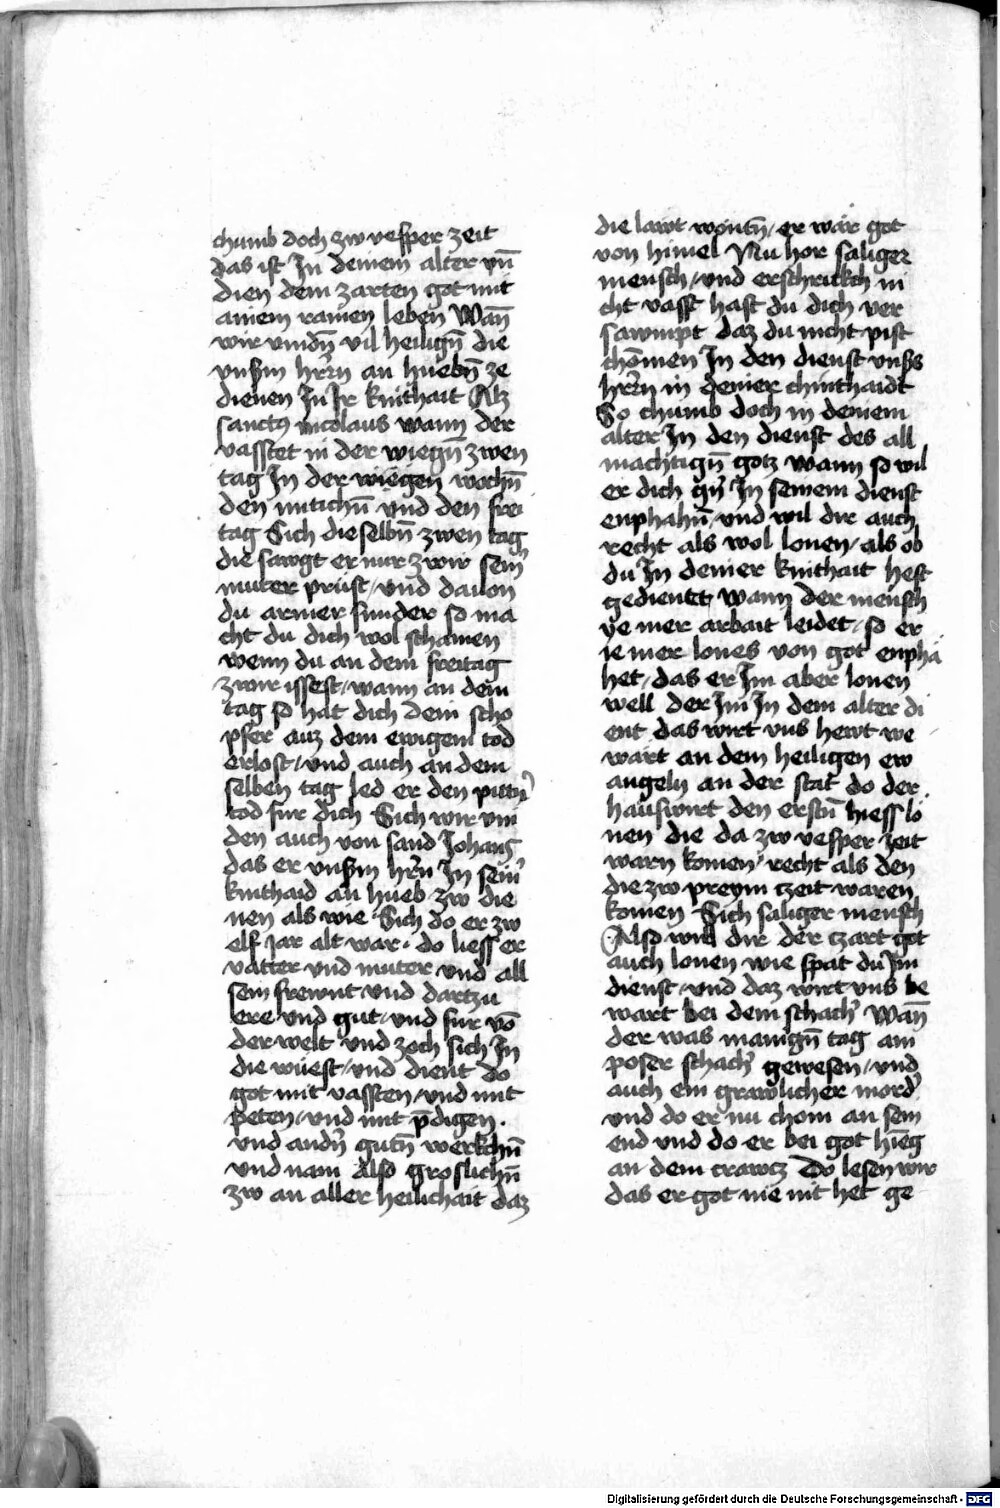 chumb doch zw vesper zeit
das ist In deinem alter vn̄
dien dem zarten got mit
ainem rainen leben Wan̄
wir vindn̄ vil heilign̄ die
vnsm hr̄n an huebn̄ ze
dienen In Ir kinthait Alz
sanctus nicolaus wann der
vasstet in der wiegn̄ zwen
tag In der wiegen wochn̄
den mitichn̄ vnd den frei
tag Sich dieselbn̄ zwen tag
die sawgt er nur zwir sein
muter prüst / vnd dauon
du armer sunder so ma
cht du dich wol schamen
wenn du an dem freitag
zwir issest / wann an dem
tag so hat dich dein scho
pfer auz dem ewigem tod
erlost / vnd auch an dem
selben tag led er den pittn̄
tod fur dich Sich wir vin
den auch von sand Johans
das er vnsm hr̄n In sein̄
kinthaid an hueb zw die
nen als wie Sich do er zw
elf jar alt war · do liess er
vatter vnd muter vnd all
sein frewnt vnd dartzu
ere vnd gut / vnd fur vō
der welt vnd zoch sich In
die wüest / vnd dient do
got mit vassten / vnd mit
peten / vnd mit p̄digen ·
vnd andn̄ gutn̄ werkchn̄
vnd nam Also groslichn̄
zw an aller heilichait daz
die lawt wontn̄ / er wär got
von himel Nu hor saliger
mensch / vnd erschrickch ni
cht vasst hast du dich ver
sawmpt daz du nicht pist
chomen In den dienst vnsers
hr̄n in deiner chinthaidt
So chumb doch in deinem
alter In den dienst des all
machtign̄ gotz wann so wil
er dich gn̄ In seinem dienst
enphahn̄ / vnd wil dir auch
recht als wol lonen / als ob
du In deiner kinthait hest
gedientt / wann der mensch
ye mer arbait leidet / so er
ie mer lones von got enpha
het / das er Im aber lonen
well der Im In dem alter di
ent das wirt vns hewt we
wärt an dem heiligen ew
angely an der stat do der
hauswirt den erstn̄ hiess lo
nen die da zw vesper zeit
warn komen / recht als den
die zw preym tzeit waren
komen Sich saliger mensch
Also wil dir der tzart got
auch lonen wie spat du Im
dienst / vnd daz wirt vns be
wart bei dem schach̄ Wan̄
der was manign̄ tag ain
poser schach̄ gewesen / vnd
auch ein grawlicher mord̄
vnd do er nu chom an sein
end vnd do er bei got hieng
an dem crawcz Do lesen wir
das er got nie nit het ge
Digitalisierung gefördert durch die Deutsche Forschungsgemeinschaft - DFG